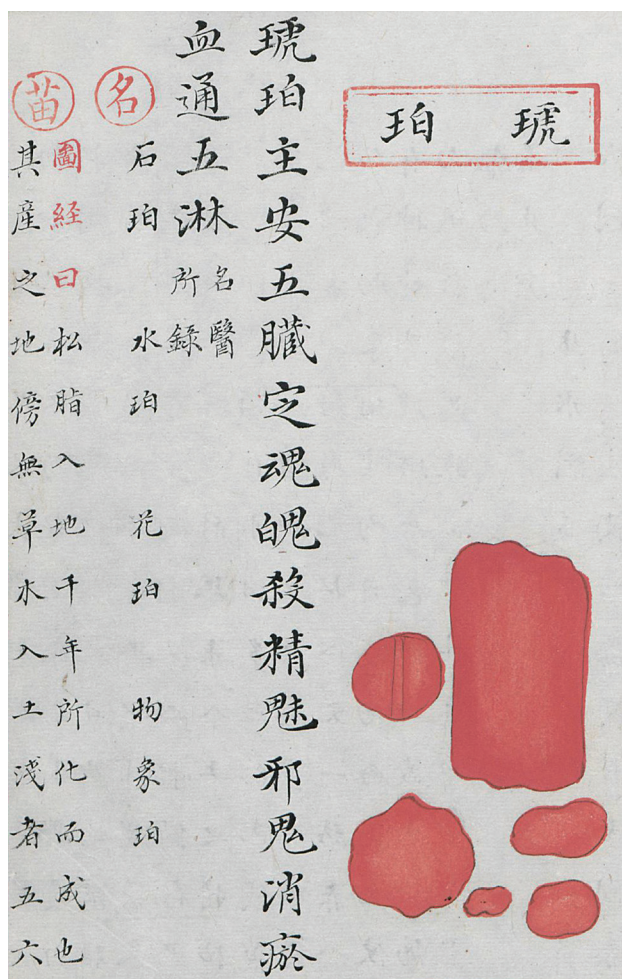 琥珀
琥珀主安五臓定魂魄殺精魅邪鬼消瘀
血通五淋名醫所錄
名 石珀 水珀 花珀 物象珀
苗 圖経曰松脂入地千年所化而成也
其産之地傍無草木入土淺者五六